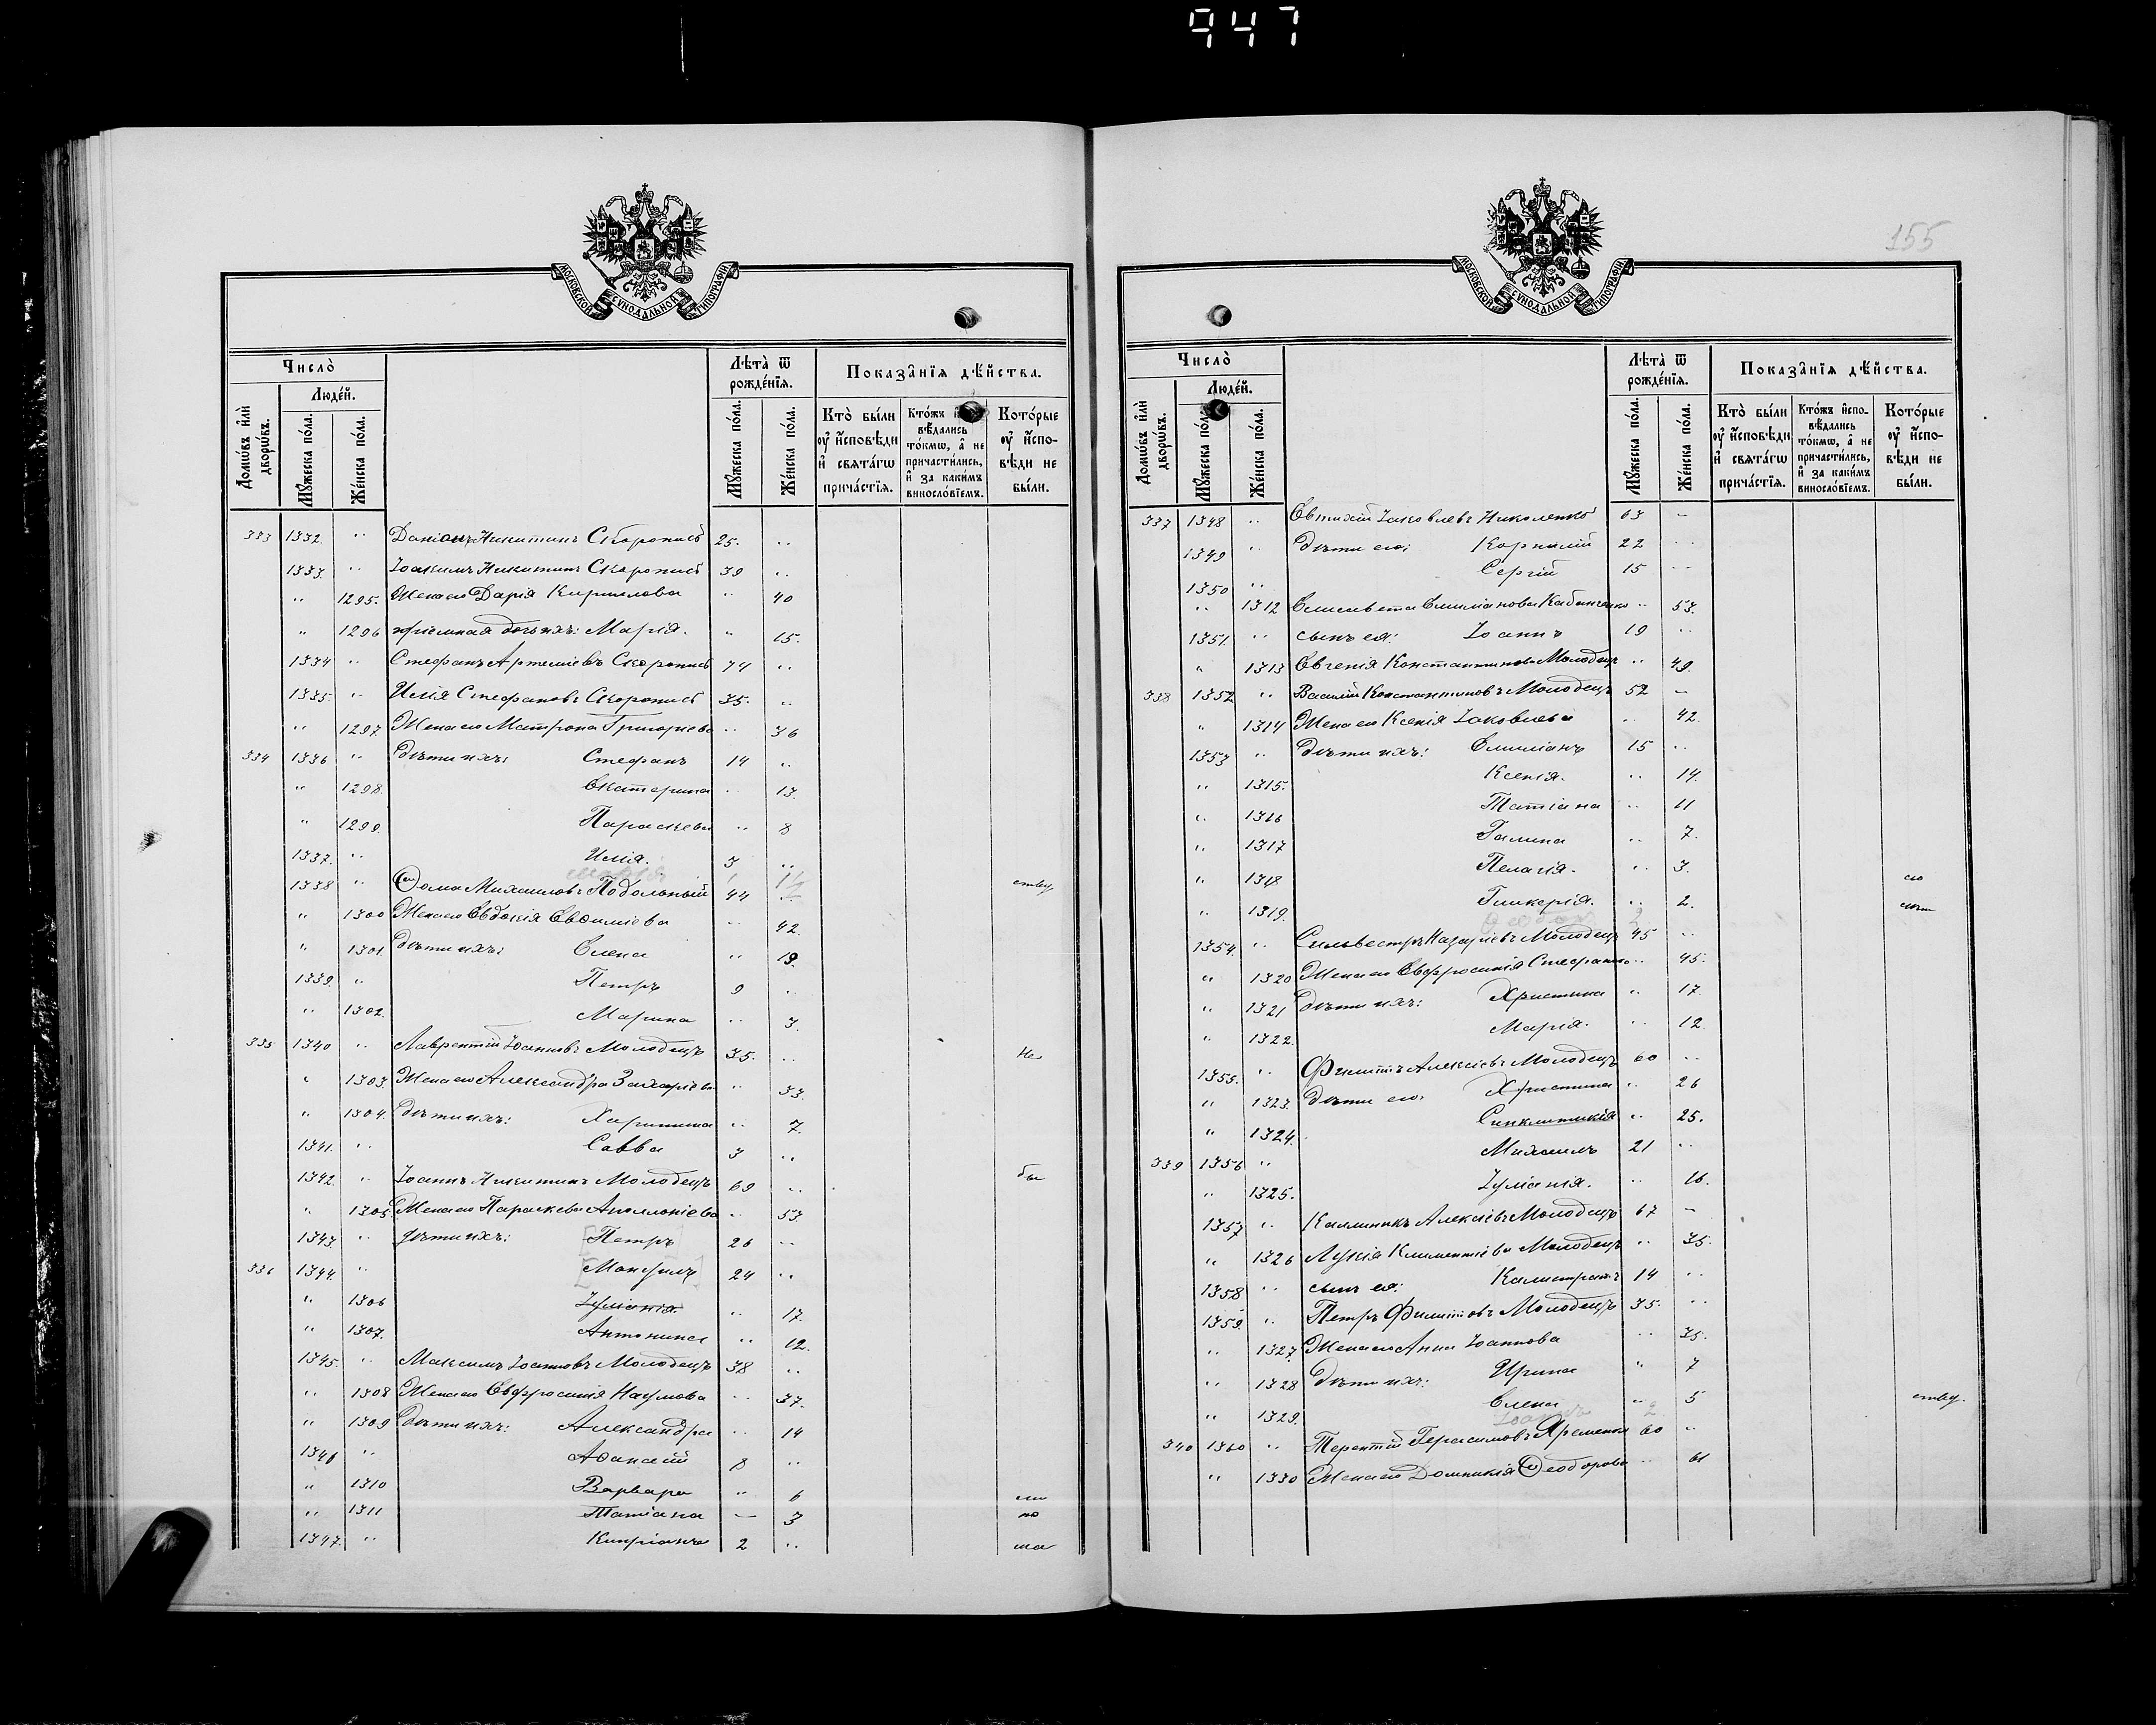 947
МОСКОВСКОЙ СУНОДАЛЬНОЙ ТИПОГРАФІИ
Число̀
Люде́й.
Домѡ́въ и҆лѝ дворѡ́въ.
Мꙋ́жеска по́ла.
Же́нска по́ла.
Лѣта̀ ѿ рожде́нїѧ.
Мꙋ́жеска по́ла.
Же́нска по́ла.
Показа̑нїѧ дѣ́йства.
Кто̀ бы́ли ᲂу҆ и҆́сповѣди и҆ свѧта́гѡ прича́стїѧ.
Кто́жъ вѣ́дались то́кмѡ, а҆ не причасти́лись, и҆ за каки́мъ виносло́вїемъ.
Кото́рые ᲂу҆ и҆́спо-вѣди не бы́ли.
333 1332. " Даніилъ Никитинъ Скорописъ 25. "
1333. " Іоакимъ Никитинъ Скоропис 39 "
" 1295. Жена его Дарія Кириллова " 40
" 1296 пріемная дочь ихъ: Марія. " 15.
1334 " Стефанъ Артеміевъ Скоропис 74 "
1335. " Илія Стефановъ Скоропис 35. "
" 1297. Жена его Матрона Григорьева " 36
334 1336 " Дѣти ихъ: Стефанъ 14 "
" 1298. Екатерина " 13.
" 1299. Параскева " 8
1337. " Илія. 3 "
Марія 1½
1338 " Ѳома Михаиловъ Подольный 44 " ству
" 1300 Жена его Евдокія Евѳиміева " 42.
" 1301 Дѣти ихъ: Елена " 19.
1339. " Петръ 9 "
" 1302. Марина " 3.
335 1340 " Лаврентій Іоанновъ Молодецъ 35. " Не
" 1303. Жена его Александра Захаріева " 33.
" 1304. Дѣти ихъ: Харитина " 7.
1341. " Савва 3 "
1342. " Іоаннъ Никитинъ Молодецъ 69 " бы
" 1305. Жена его Параскева Аполлоніева " 53.
1343. " Дѣти ихъ: [Петръ] 26 "
336 1344. " [Мануилъ] 24 "
" 1306 Іуліанія " 17.
" 1307. Антонина " 12.
1345. " Максимъ Іоанновъ Молодецъ 38 "
" 1308 Жена его Евфросинія Наумова " 37.
" 1309 Дѣти ихъ: Александра " 14
1346 " Аѳанасій 8 "
" 1310 Варвара " 6
" 1311 Татіана — 3 по
1347. " Кипріанъ 2 "
155
МОСКОВСКОЙ СУНОДАЛЬНОЙ ТИПОГРАФІИ
Число̀
Люде́й.
Домѡ́въ и҆лѝ дворѡ́въ.
Мꙋ́жеска по́ла.
Же́нска по́ла.
Лѣта̀ ѿ рожде́нїѧ.
Мꙋ́жеска по́ла.
Же́нска по́ла.
Показа̑нїѧ дѣ́йства.
Кто̀ бы́ли ᲂу҆ и҆́сповѣди и҆ свѧта́гѡ прича́стїѧ.
Кто́жъ и҆спо-вѣ́дались то́кмѡ, а҆ не причасти́лись, и҆ за каки́мъ виносло́вїемъ.
Кото́рые ᲂу҆ и҆́спо-вѣди не бы́ли.
337 1348 " Евтихій Іаковлевъ Николенко 63 —
1349 " Дѣти его: Корнилій 22 "
1350 " Сергій 15 "
" 1312 Елисавета Емиліанова Кабанченко " 53.
1351. " сынъ ея: Іоаннъ 19 "
" 1313 Евгенія Константинова Молодецъ " 49.
338 1352 " Василій Константиновъ Молодецъ 52 —
" 1314 Жена его Ксенія Іаковлева " 42.
1353 " Дѣти ихъ: Емиліанъ 15 "
" 1315. Ксенія. " 14.
" 1316 Татіана " 11
" 1317 Галина " 7.
" 1318 Пелагія. " 3.
" 1319. Гликерія. " 2.
1354. " Сильвестръ Назаріевъ Молодецъ 45 "
" 1320 Жена его Евфросинія Стефанова " 45.
" 1321 Дѣти ихъ: Христина " 17.
" 1322. Марія. " 12.
1355. " Филиппъ Алексіевъ Молодецъ 60 "
" 1323. Дѣти его: Христина " 26
" 1324. Синклитикія " 25.
339 1356 " Михаилъ 21 "
" 1325. Іуліанія. " 16.
1357 " Каллиникъ Алексіевъ Молодецъ 67 —
" 1326 Лукія Климентіева Молодецъ " 35.
1358 " сынъ ея: Калистратъ 14 "
1359. " Петръ Филипповъ Молодецъ 35. "
" 1327. Жена его Анна Іоаннова " 35.
" 1328 Дѣти ихъ: Ирина " 7
" 1329. Елена " 5 ству.
Іоаннъ 2
340 1360 " Терентій Герасимовъ Яременко 60 "
" 1330 Жена его Домникія Ѳеодорова " 61